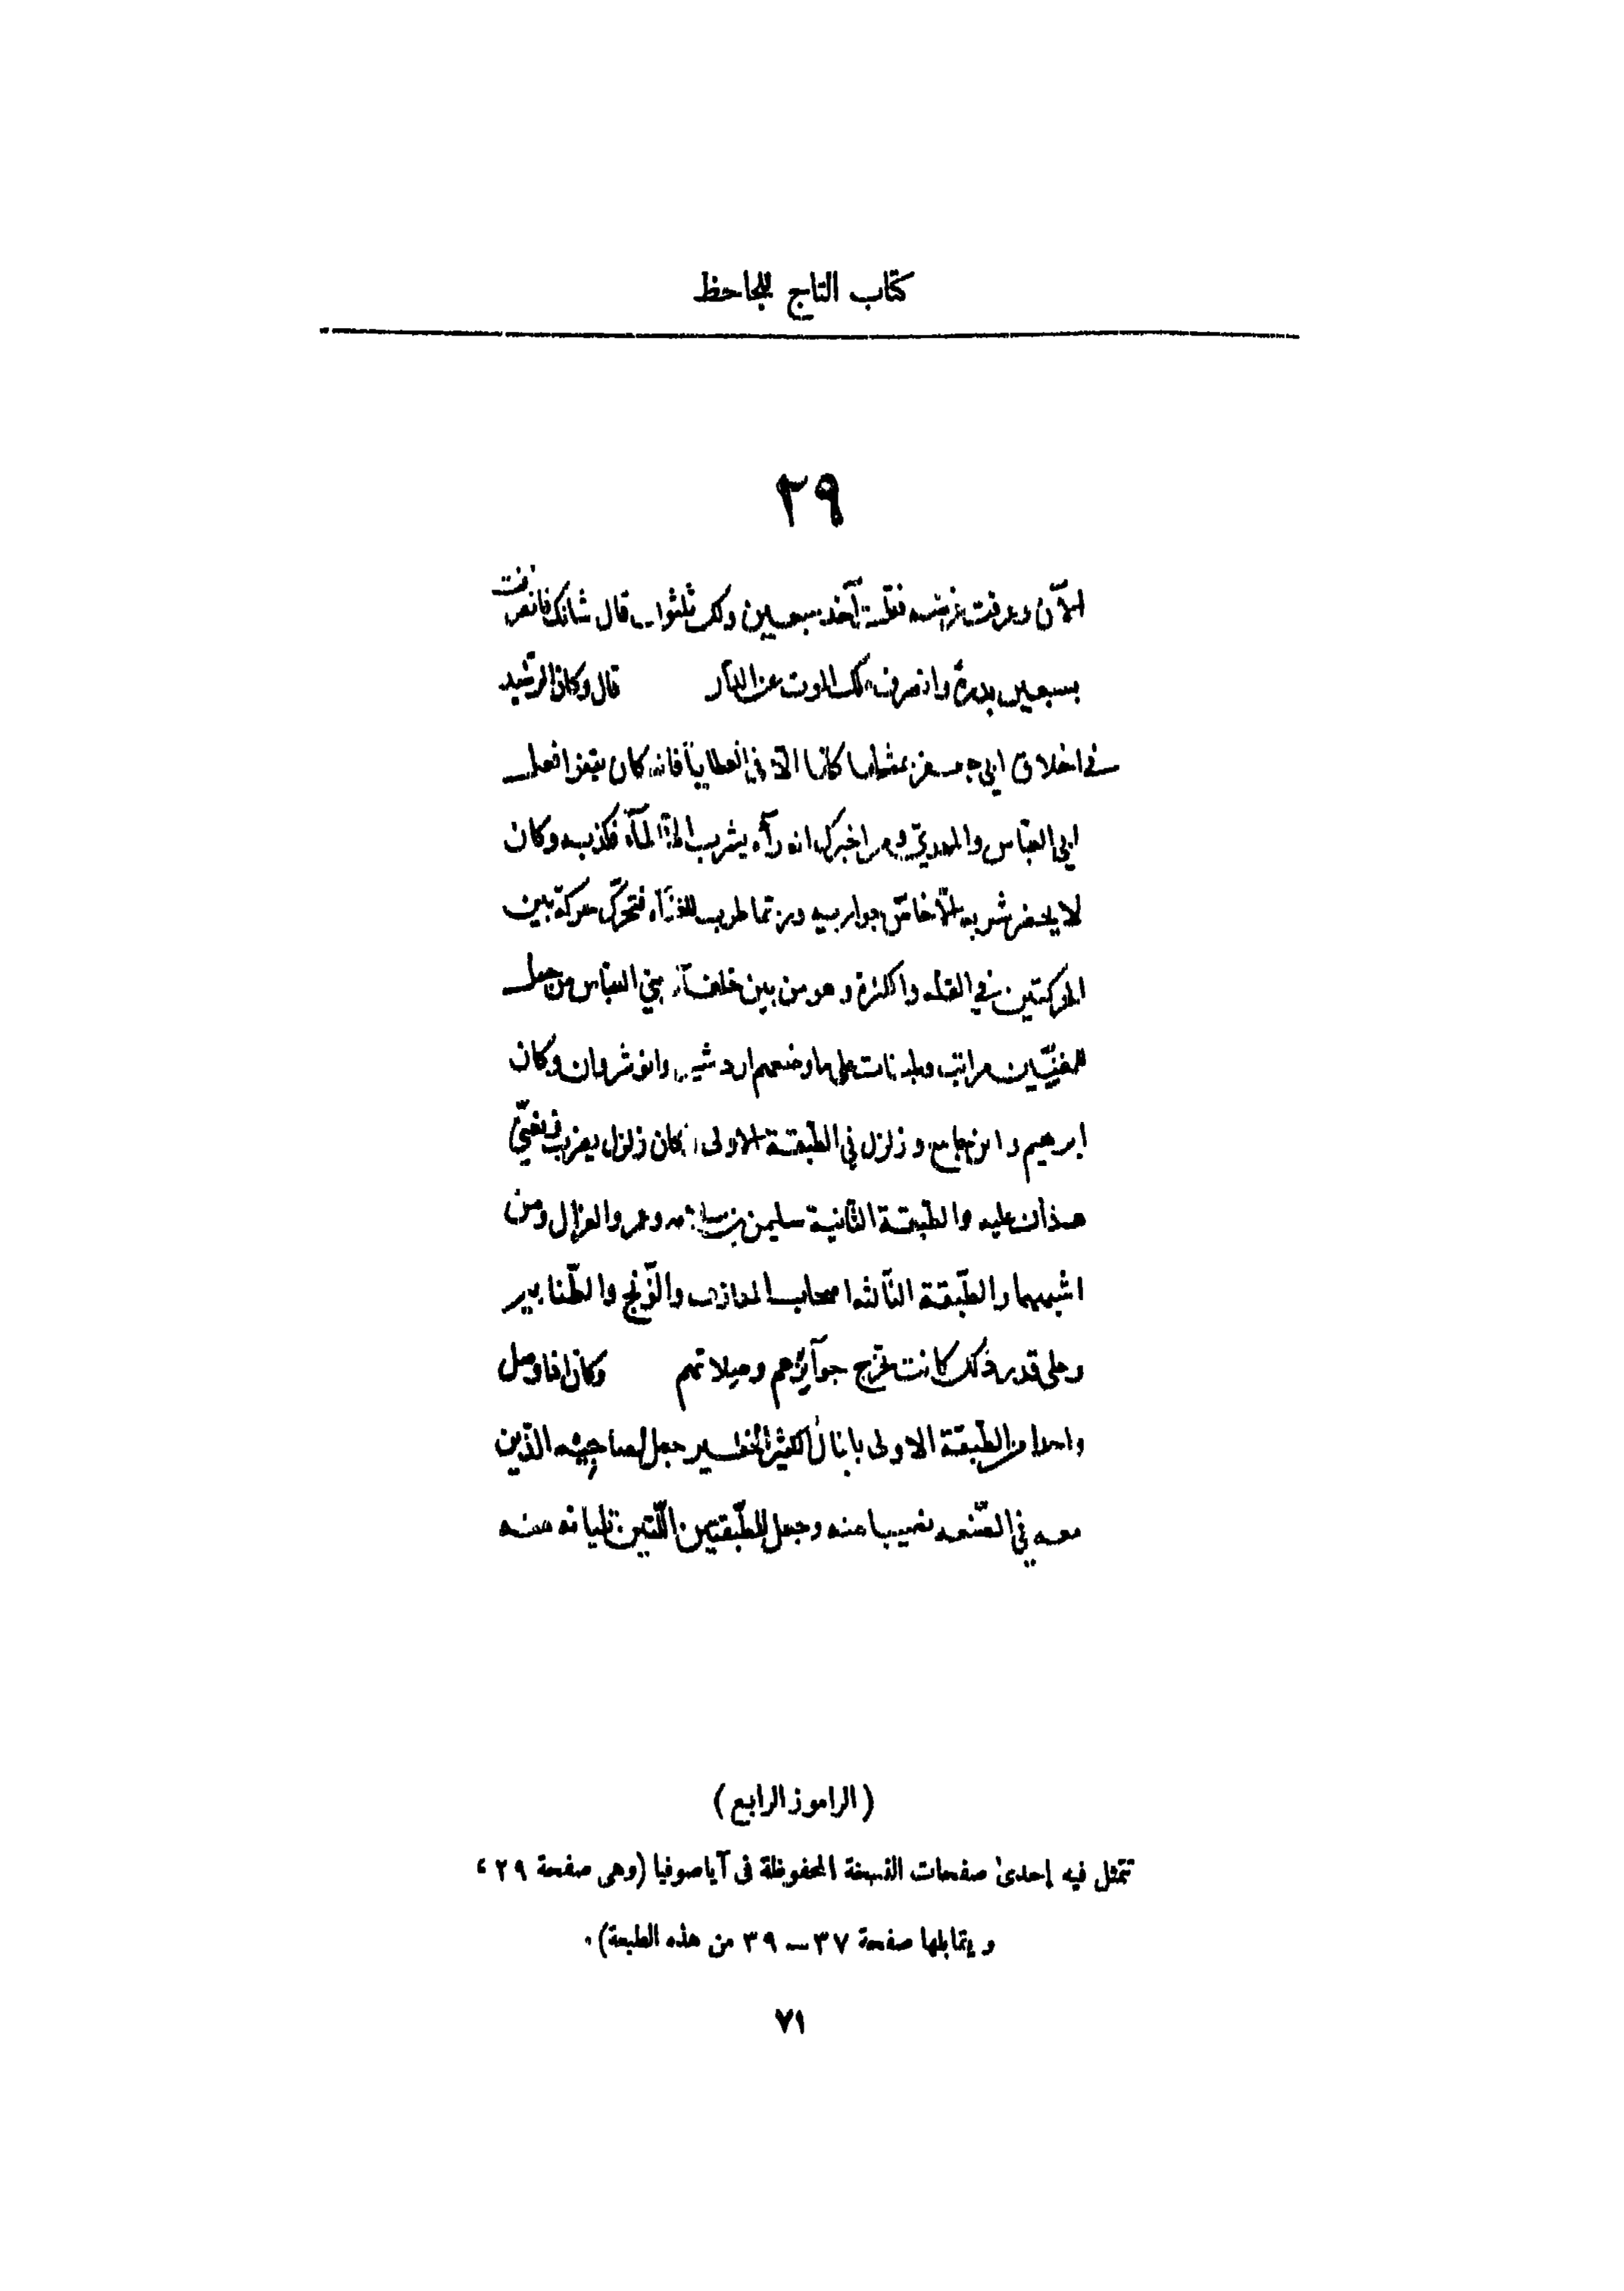 كتاب التاج للجاحظ
٢٩
الآن وعرفت غرضه فقلت آخذ سبعين ولك ثلثون قال شانك فانصرفت
بسبعين بدرة وانصرف ملك الموت عن الدار قال وكان الرشيد
في اخلاق ابي جعفر يمتثلها كلها الا في العطايا فانه كان يقفوا فعل
ابي العباس والمهدي ومن اخبرك انه رآه يشرب الا الماء فكذبه وكان
لا يحضر شربه الا خاص جواريه وربما طرب للغناء فتحرك حركة بين
الحركتين في القلة والكثرة وهو من بين خلفاء بني العباس من جعل
للمغنين مراتب وطبقات على ما وضعهم اردشير وانوشروان وكان
ابرهيم وابن جامع وزلزل في الطبقة الاولى وكان زلزل يضرب ويغني
هذان عليه والطبقة الثانية سليمن بن سلام وعمرو الغزال ومن
اشبههما والطبقة الثالثة اصحاب المعازف والونج والطنابير
وعلى قدر ذلك كانت تخرج جوآيزهم وصلاتهم وكان اذا وصل
واحدا من الطبقة الاولى بالمال الكثير الخطير جعل لصاحبيه الذين
معه في الصنعه نصيبا منه وجعل للطبقتين اللتين تليانه منه
(الراموز الرابع)
تتمثل فيه إحدى صفحات النسخة المحفوظة فى آياصوفيا (وهى صفحة ٢٩،
ويقابلها صفحة ٣٧ — ٣٩ من هذه الطبعة).
٧١